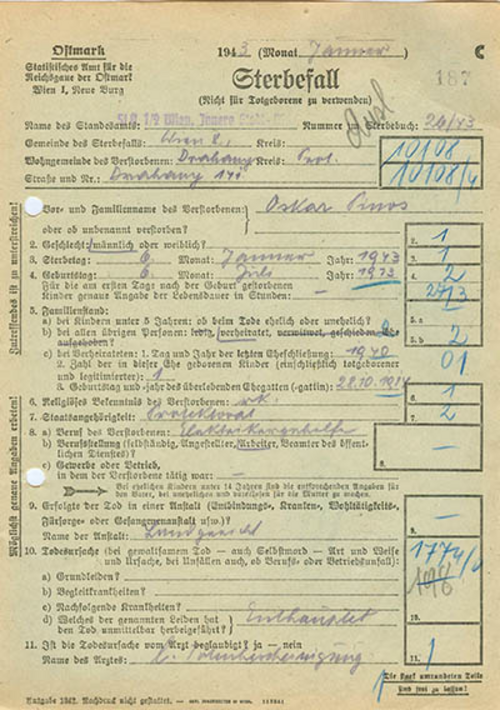 Ostmark
Statistisches Amt für die
Reichsgaue der Ostmark
Wien I, Neue Burg
1943 (Monat Jänner)
C
Sterbefall
187
(Nicht für Totgeborene zu verwenden)
Name des Standesamts: Wien, Innere Stadt Nummer Sterbebuch: 26/43
Gemeinde des Sterbefalls: Wien 8., Kreis:
10108
Wohngemeinde des Verstorbenen: Drahany Kreis: Prot.
10108/4
Straße und Nr.: Drahany 141
Vor- und Familienname des Verstorbenen: Oskar
oder ob unbenannt verstorben?
2. Geschlecht: männlich oder weiblich?
2. 1
3. Sterbetag: 6. Monat: Jänner Jahr: 1943
3. 1
4. Geburtstag: 6. Monat: Juli Jahr: 1913
4. 2
Für die am ersten Tage nach der Geburt gestorbenen
Kinder genaue Angabe der Lebensdauer in Stunden: —
5. Familienstand:
a) bei Kindern unter 5 Jahren: ob beim Tode ehelich oder unehelich?
5. a
b) bei allen übrigen Personen: ledig, verheiratet, verwitwet, geschieden, Ehe
aufgehoben?
5. b 2
c) bei Verheirateten: 1. Tag und Jahr der letzten Eheschließung: 1940
2. Zahl der in dieser Ehe geborenen Kinder (einschließlich totgeborener
und legitimierter): 1
01
3. Geburtstag und -jahr des überlebenden Ehegatten (-gattin): 28.10.
6. Religiöses Bekenntnis des Verstorbenen: r.k.
6. 1
7. Staatsangehörigkeit: Protektorat
7. 2
8. a) Beruf des Verstorbenen: Elektrikergehilfe
b) Berufsstellung (selbständig, Angestellter, Arbeiter, Beamter des öffent-
lichen Dienstes)?
8. —
c) Gewerbe oder Betrieb,
in dem der Verstorbene tätig war: —
Bei ehelichen Kindern unter 14 Jahren sind die entsprechenden Angaben für
den Vater, bei unehelichen und vaterlosen für die Mutter zu machen.
9. Erfolgte der Tod in einer Anstalt (Entbindungs-, Kranken-, Wohltätigkeits-,
Fürsorge- oder Gefangenanstalt usw.)?
Name der Anstalt: Landgericht
9. —
10. Todesursache (bei gewaltsamem Tod — auch Selbstmord — Art und Weise
und Ursache, bei Unfällen auch, ob Berufs- oder Betriebsunfall):
198
a) Grundleiden?
b) Begleitkrankheiten?
c) Nachfolgende Krankheiten?
d) Welches der genannten Leiden hat
den Tod unmittelbar herbeigeführt? Enthauptet
10.
11. Ist die Todesursache vom Arzt beglaubigt? ja — nein
Name des Arztes: l. Totenbescheinigung
11. 1
Die stark umrandeten Teile
sind frei zu lassen!
Ausgabe 1942. Nachdruck nicht gestattet.
Unterstes ist zu unterstreichen!
Möglichst genaue Angaben erbeten!